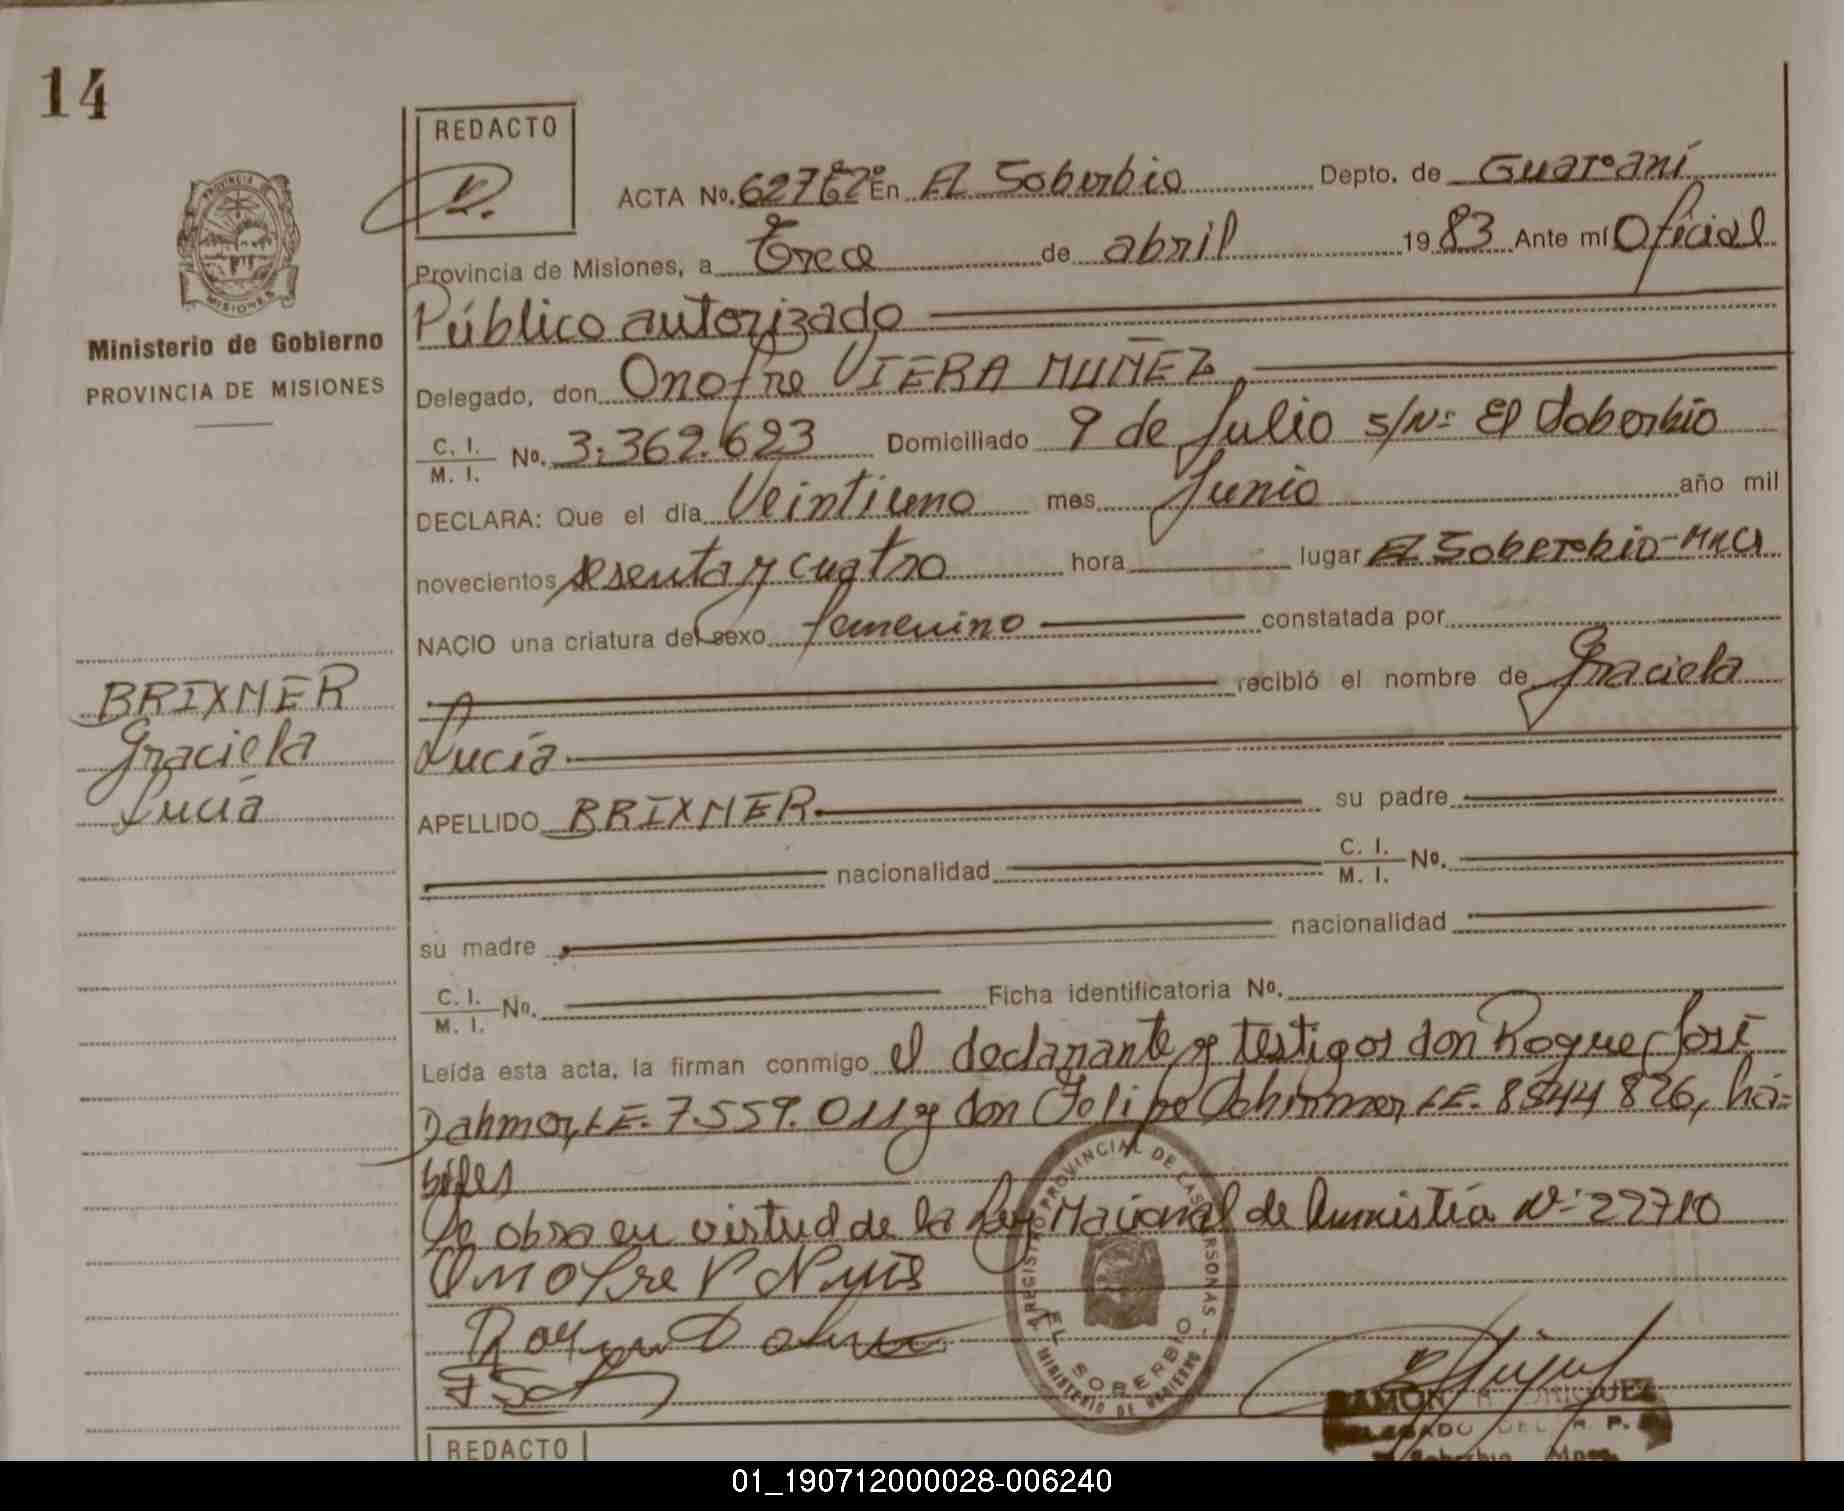 14
REDACTO
ACTA No. En El Soberbio Depto. de Guaraní
Provincia de Misiones, a Trece de abril 1983 Ante mí Oficial
Público autorizado
Delegado, don Onofre VIERA MUÑEZ
C. I. M. I. No. 3.362.623 Domiciliado 9 de Julio s/Nº El Soberbio
DECLARA: Que el día Veintiuno mes Junio año mil
novecientos sesenta y cuatro hora lugar El Soberbio-Mnes
NACIO una criatura del sexo femenino constatada por
recibió el nombre de Graciela
Lucía
APELLIDO BRIXNER su padre
nacionalidad C. I. M. I. No.
su madre nacionalidad
C. I. M. I. No. Ficha identificatoria No.
Leída esta acta, la firman conmigo el declarante y testigos don Roque José
Dahmer, L.E. 7.559.011 y don Felipe Schirmer L.E. 8844826, há=
biles
Se obra en virtud de la Ley Nacional de Amnistía Nº 22710
Onofre V
PROVINCIA DE
MISIONES
Ministerio de Gobierno
PROVINCIA DE MISIONES
BRIXNER
Graciela
Lucía
REGISTRO PROVINCIAL DE LAS PERSONAS
EL SOBERBIO
MINISTERIO DE GOBIERNO
RAMON
DELEGADO DEL R. P.
El Soberbio Mnes
REDACTO
01_190712000028-006240